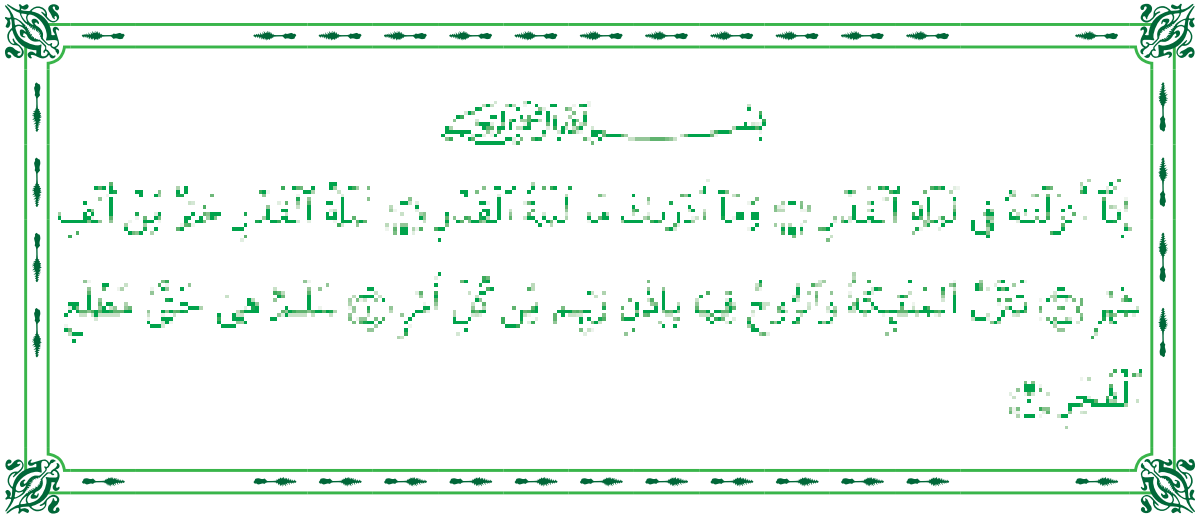 بِسْمِ اللَّهِ الرَّحْمَٰنِ الرَّحِيمِ
إِنَّا أَنزَلْنَٰهُ فِى لَيْلَةِ ٱلْقَدْرِ ١ وَمَآ أَدْرَىٰكَ مَا لَيْلَةُ ٱلْقَدْرِ ٢ لَيْلَةُ ٱلْقَدْرِ خَيْرٌ مِّنْ أَلْفِ
شَهْرٍ ٣ تَنَزَّلُ ٱلْمَلَٰٓئِكَةُ وَٱلرُّوحُ فِيهَا بِإِذْنِ رَبِّهِم مِّن كُلِّ أَمْرٍ ٤ سَلَٰمٌ هِىَ حَتَّىٰ مَطْلَعِ
ٱلْفَجْرِ ٥